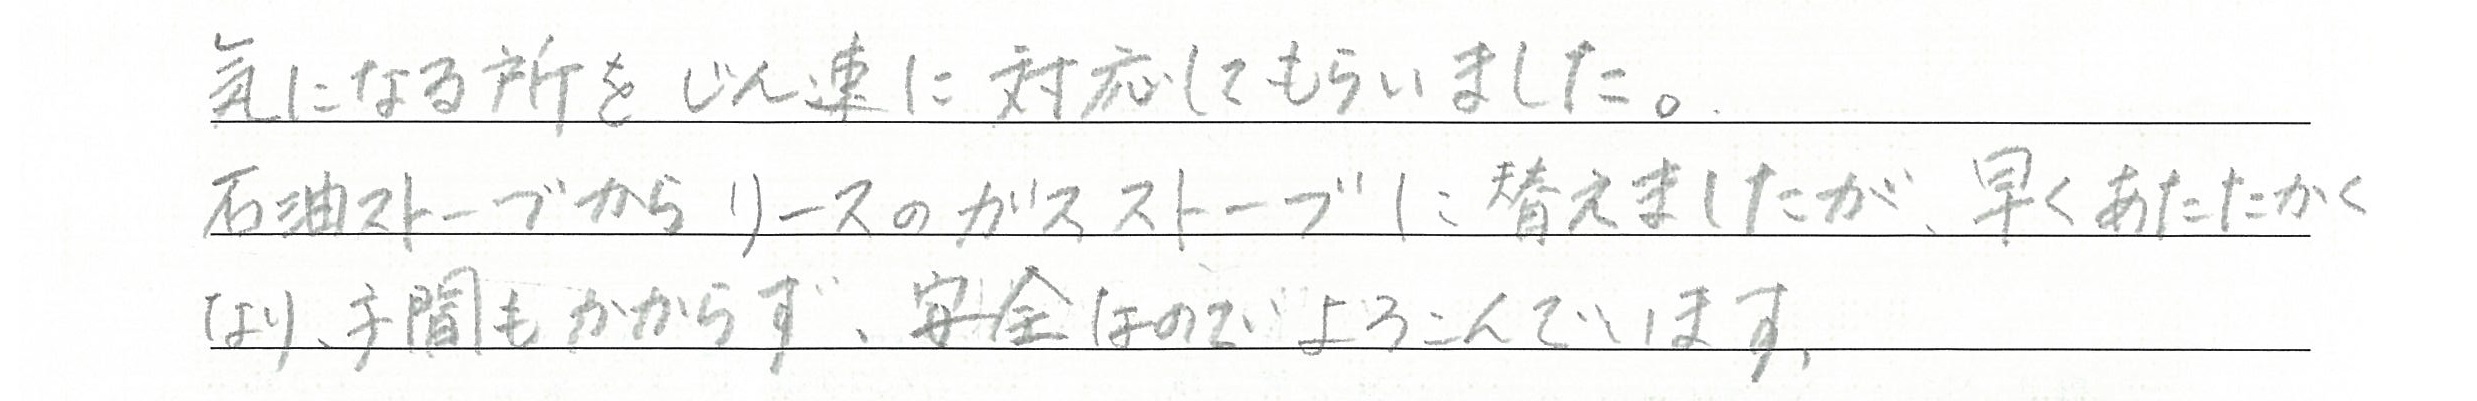 気になる所をじん速に対応してもらいました。
石油ストーブからリースのガスストーブに替えましたが、早くあたたかく
なり、手間もかからず、安全なのでよろこんでいます、